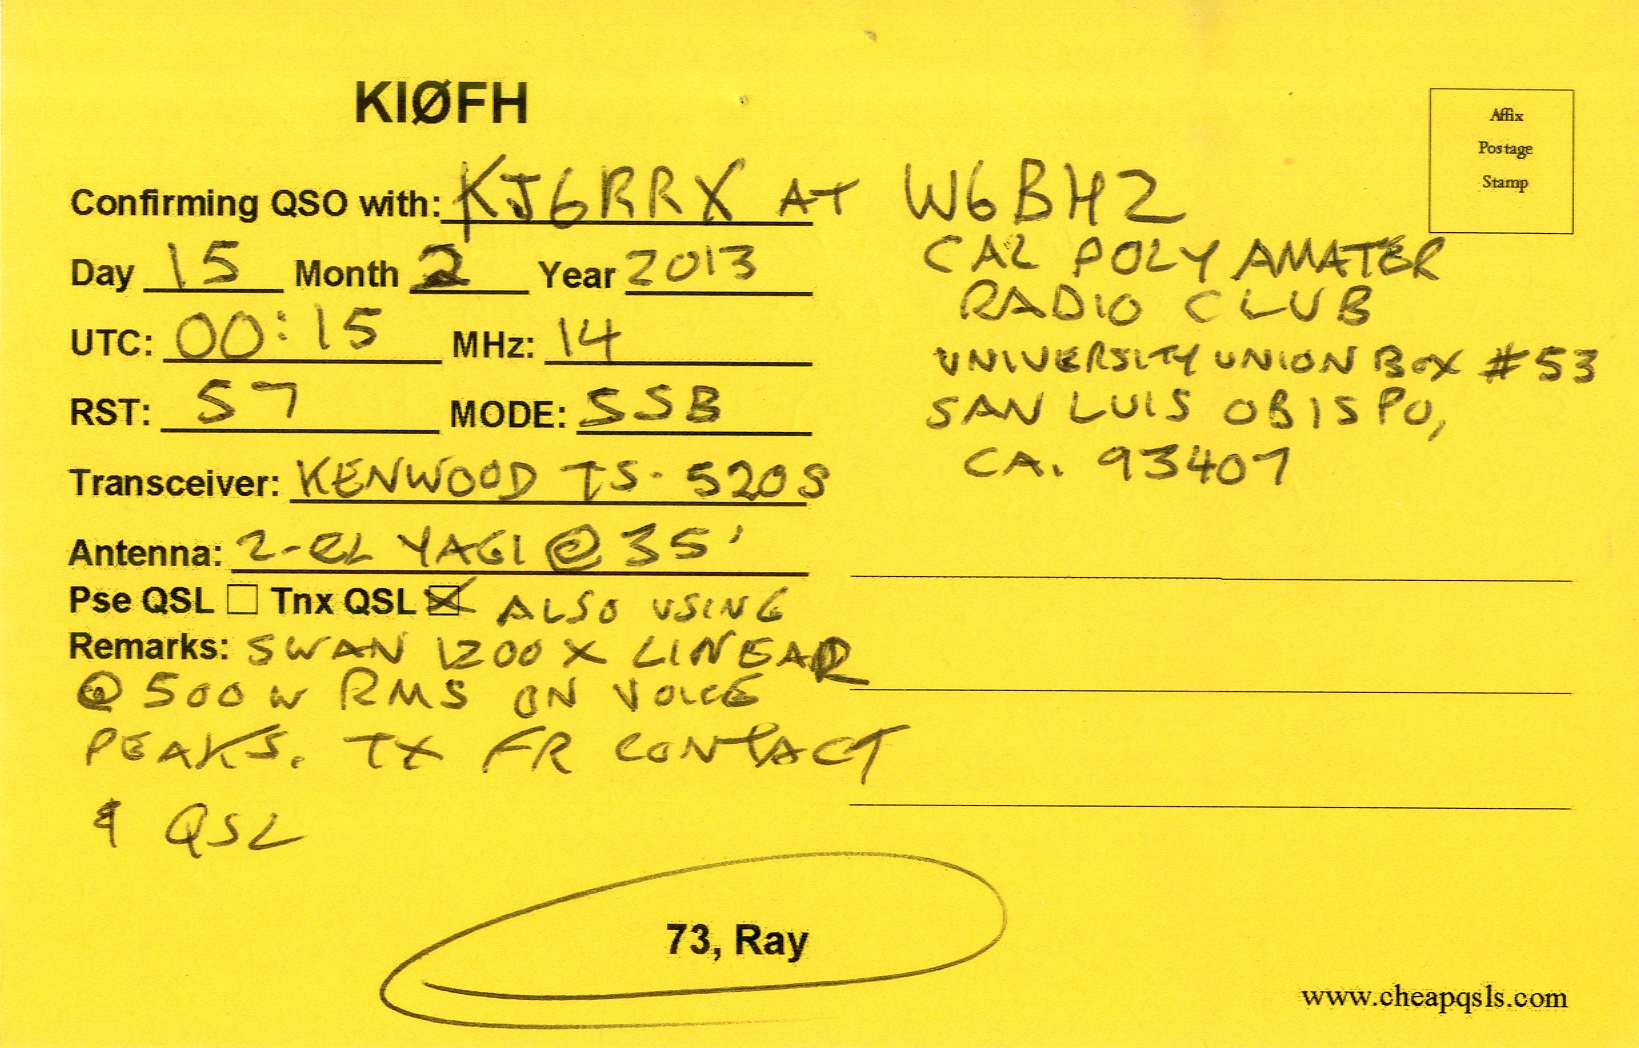 KIØFH
Confirming QSO with: KJ6RRX AT W6BHZ
Day 15 Month 2 Year 2013
UTC: 00:15 MHz: 14
RST: 57 MODE: SSB
Transceiver: KENWOOD TS-520S
Antenna: 2-EL YAGI @ 35'
Pse QSL Tnx QSL ALSO USING
Remarks: SWAN 1200X LINEAR
@ 500W RMS ON VOICE
PEAKS. TX FR CONTACT
& QSL
73, Ray
Affix
Postage
Stamp
CAL POLY AMATER
RADIO CLUB
UNIVERSITY UNION BOX #53
SAN LUIS OBISPO,
CA. 93407
www.cheapqsls.com